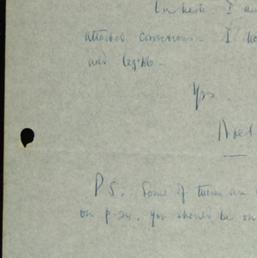 In haste I
attached corrections. I
was legible.
Yrs.
Noel
PS. Some of them are
on p-24. you should be